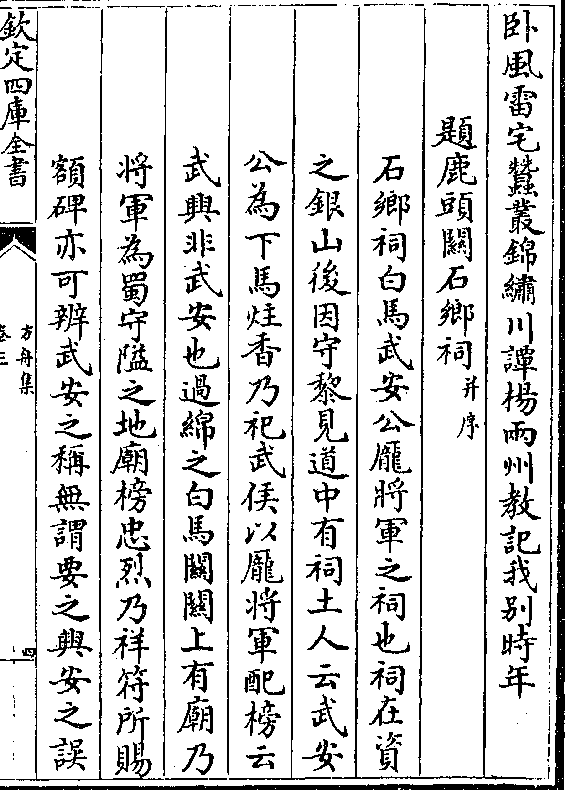 卧風雷宅蠶叢錦繡川譚楊兩州教記我别時年
題鹿頭關石鄉祠并序
石鄉祠白馬武安公龐將軍之祠也祠在資
之銀山後因守黎見道中有祠土人云武安
公為下馬炷香乃祀武侯以龐將軍配榜云
武興非武安也過綿之白馬關關上有廟乃
將軍為蜀守隘之地廟榜忠烈乃祥符所賜
額碑亦可辨武安之稱無謂要之興安之誤
欽定四庫全書
方舟集
卷三
四